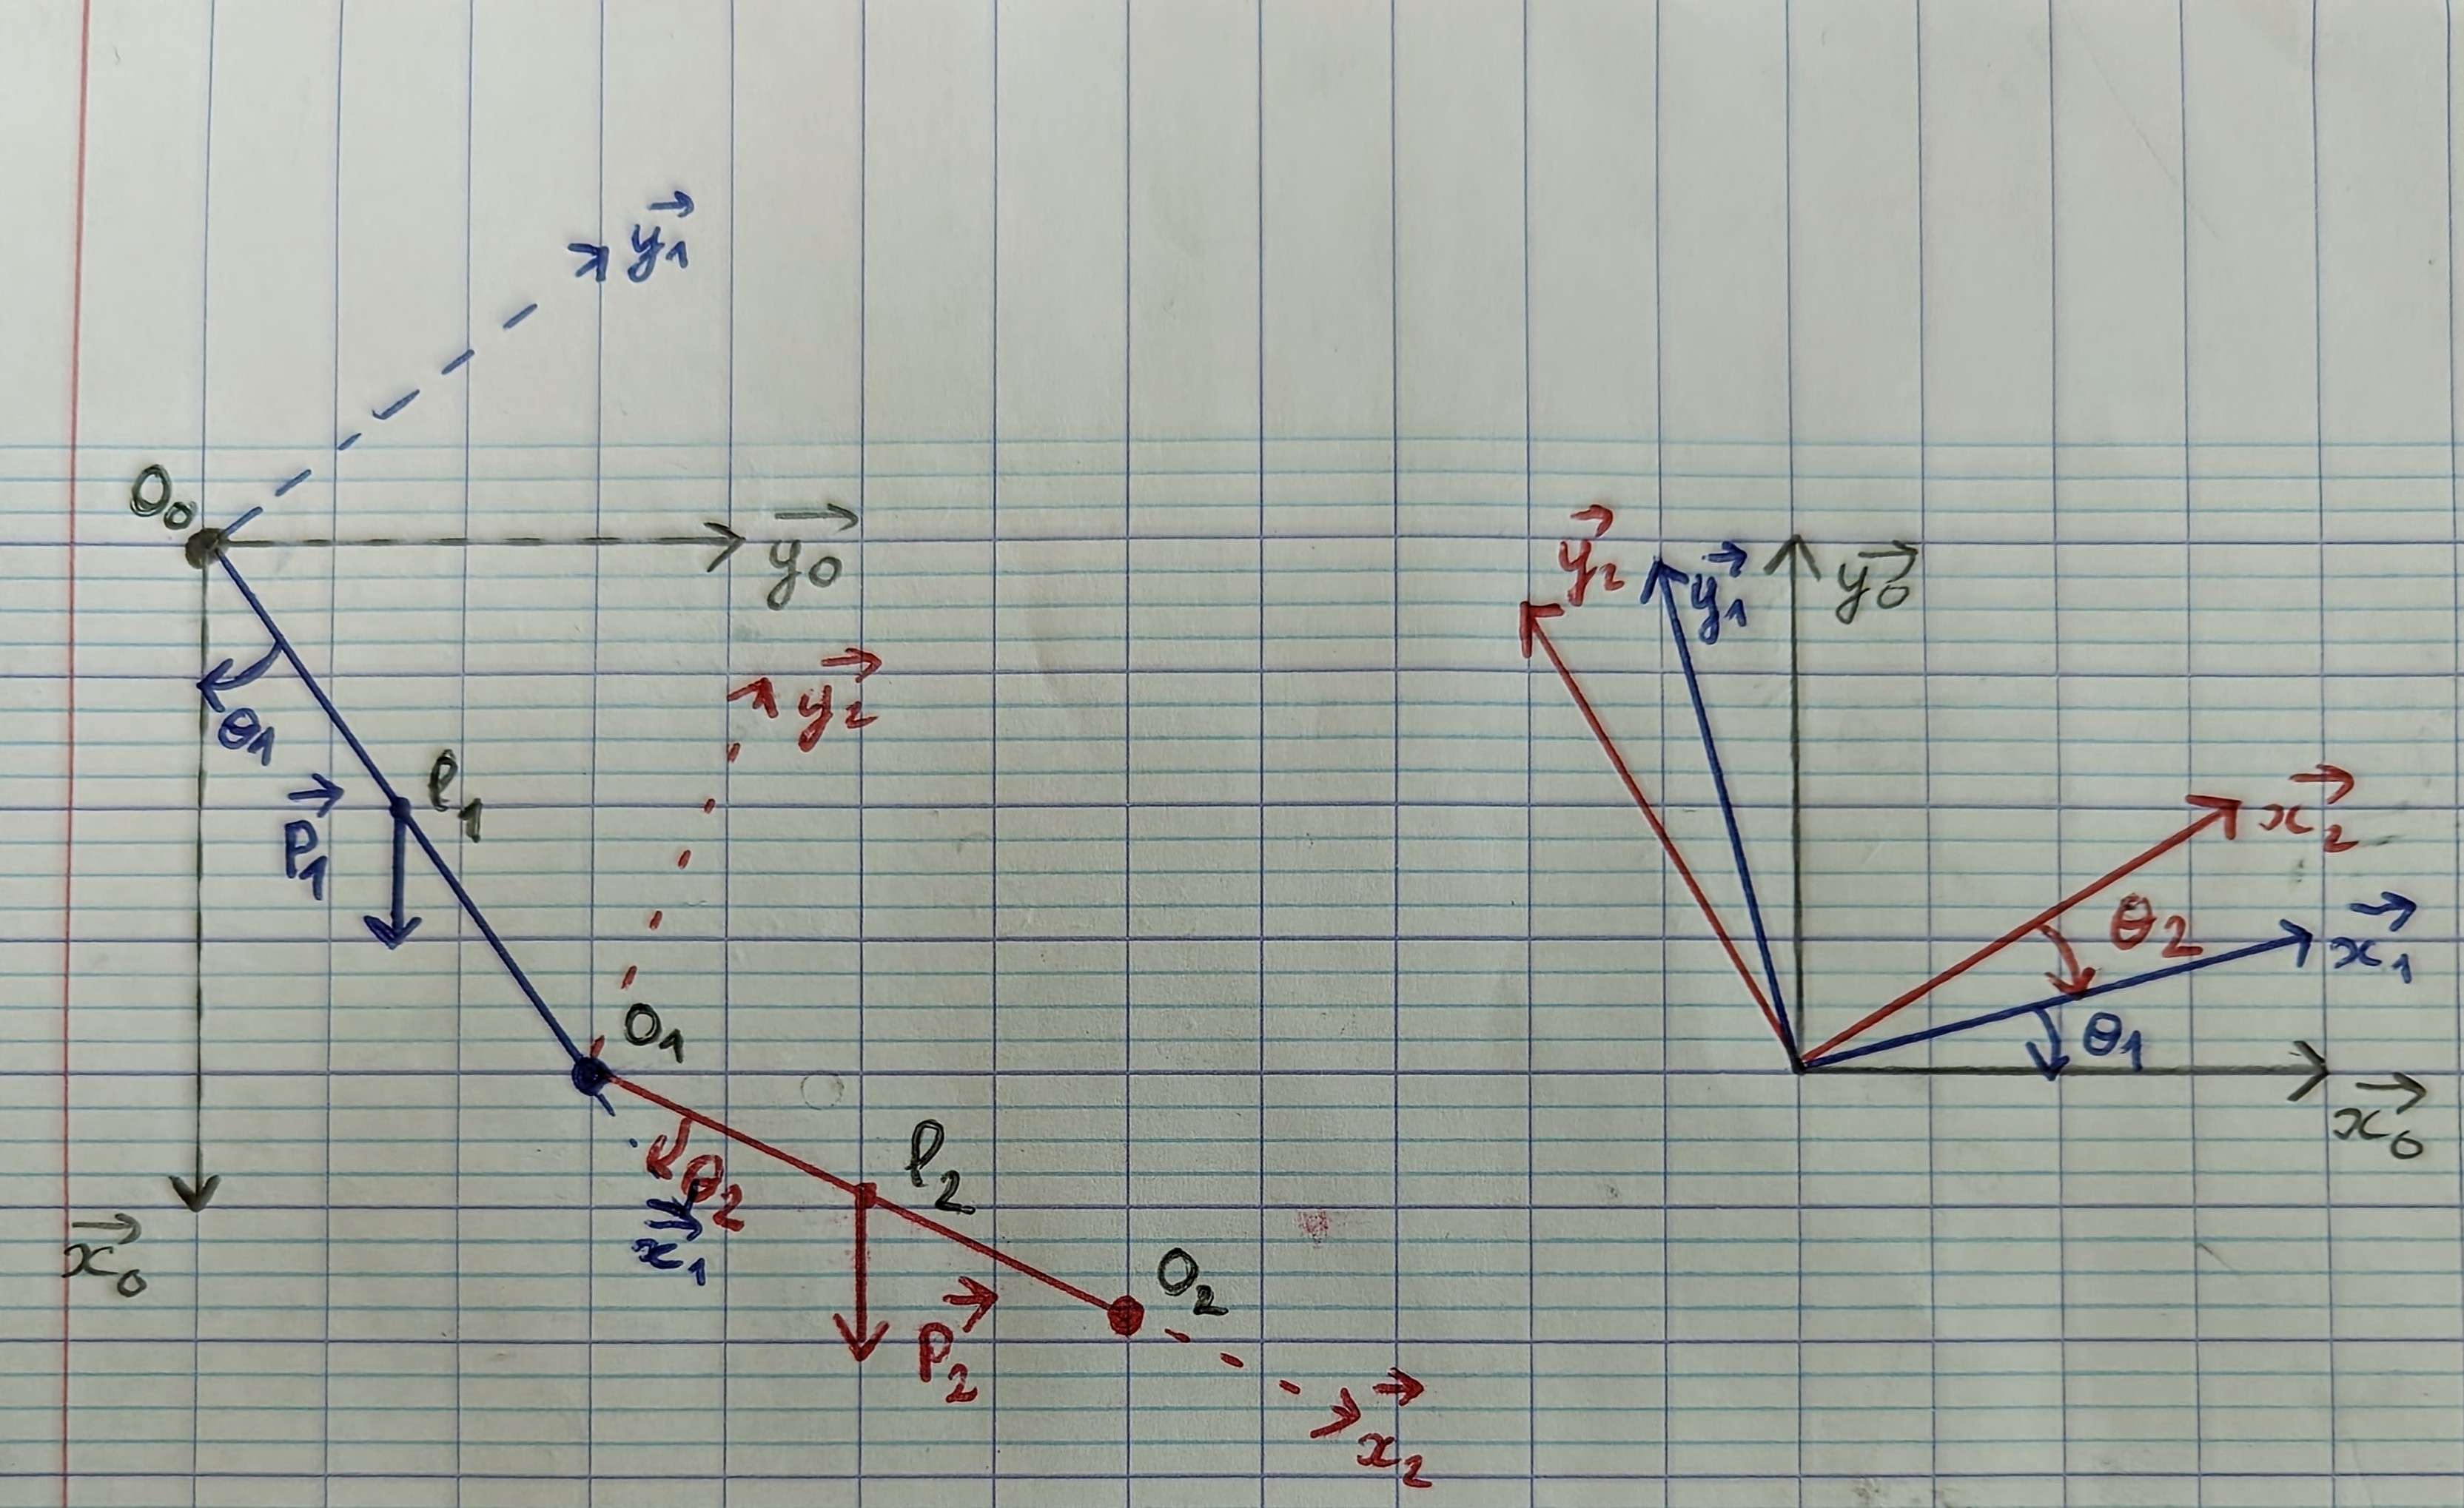 y₁⃗
O₀
y₀⃗
θ₁
y₂⃗
P₁⃗
l₁
O₁
θ₂
x₁⃗
x₀⃗
l₂
P₂⃗
O₂
x₂⃗
y₂⃗
y₁⃗
y₀⃗
x₂⃗
θ₂
x₁⃗
θ₁
x₀⃗